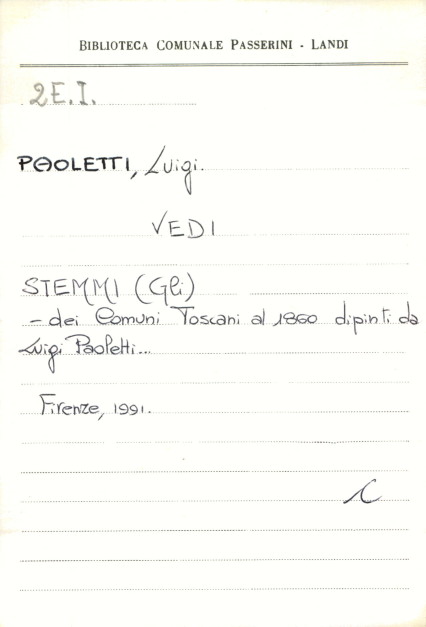 BIBLIOTECA COMUNALE PASSERINI - LANDI
2E.I.
PAOLETTI, Luigi.
VEDI
STEMMI (Gli)
- dei Comuni Toscani al 1860 dipinti da
Luigi Paoletti...
Firenze, 1991.